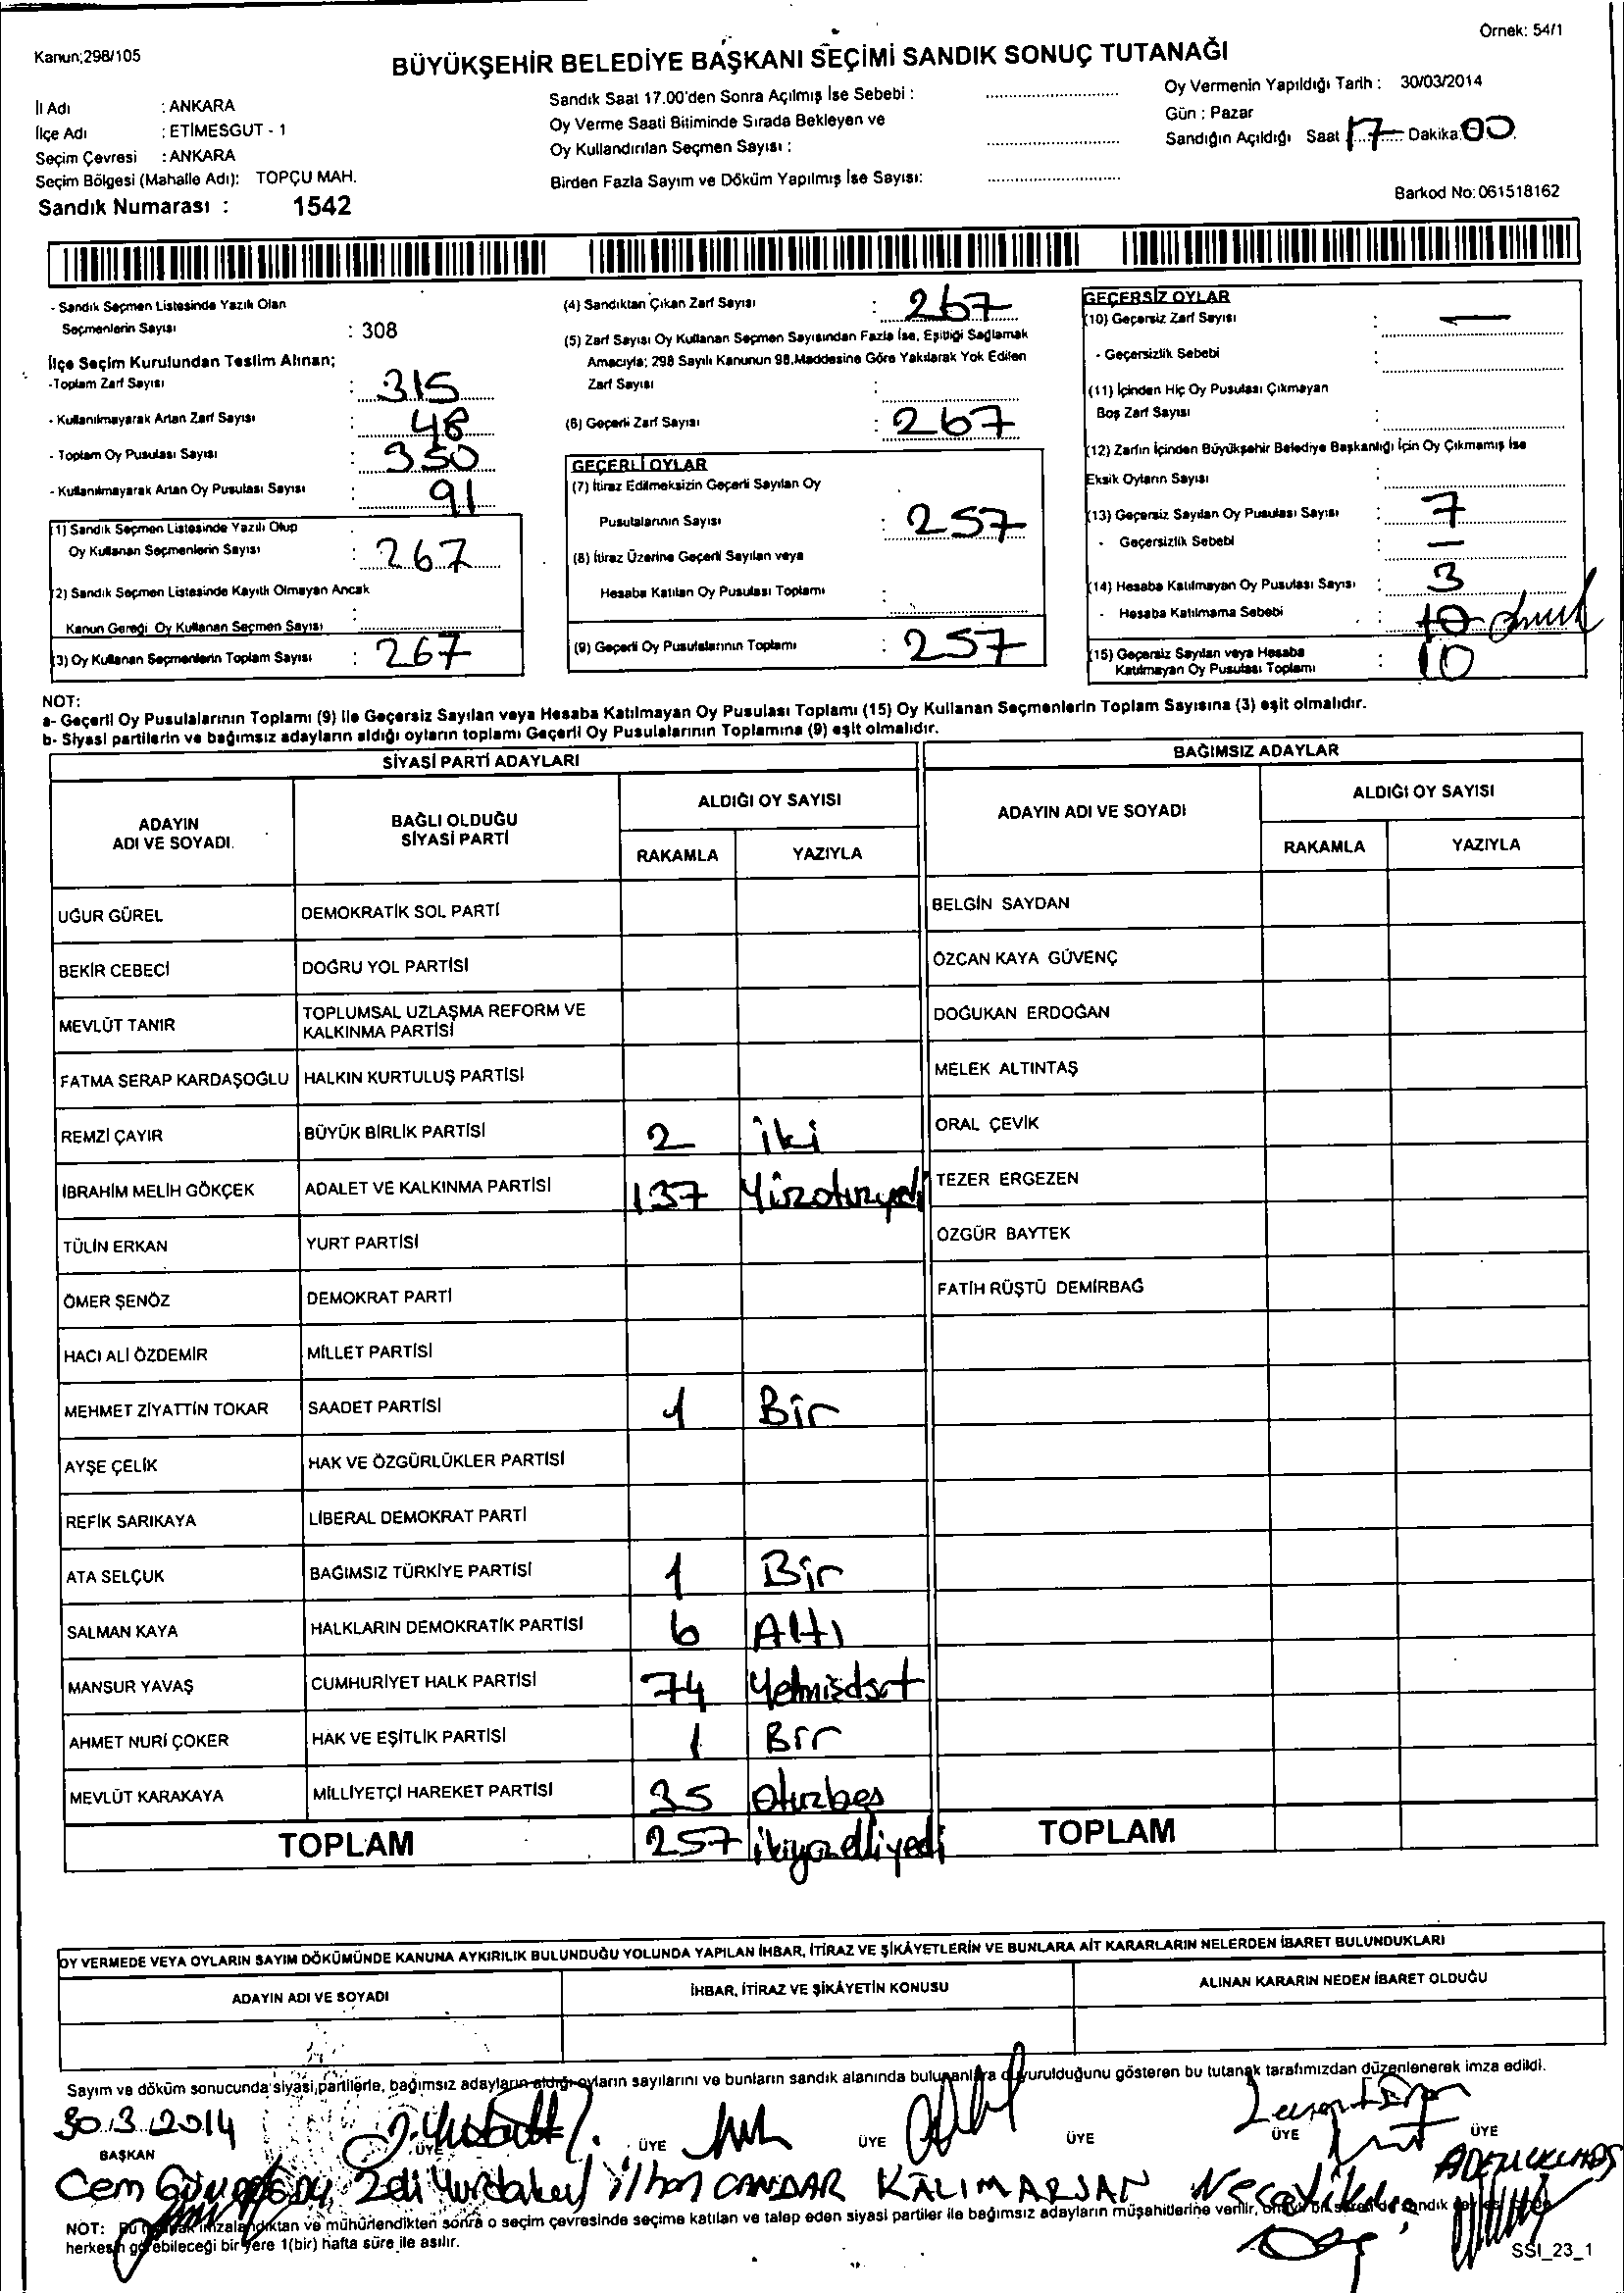 Örnek: 54/1
Kanun;298/105
BÜYÜKŞEHİR BELEDİYE BAŞKANI SEÇİMİ SANDIK SONUÇ TUTANAĞI
İl Adı : ANKARA
İlçe Adı : ETİMESGUT - 1
Seçim Çevresi : ANKARA
Seçim Bölgesi (Mahalle Adı): TOPÇU MAH.
Sandık Numarası : 1542
Sandık Saat 17.00'den Sonra Açılmış İse Sebebi :
Oy Verme Saati Bitiminde Sırada Bekleyen ve
Oy Kullandırılan Seçmen Sayısı :
Birden Fazla Sayım ve Döküm Yapılmış İse Sayısı:
Oy Vermenin Yapıldığı Tarih : 30/03/2014
Gün : Pazar
Sandığın Açıldığı Saat 17 Dakika 00
Barkod No: 061518162
- Sandık Seçmen Listesinde Yazılı Olan
Seçmenlerin Sayısı : 308
İlçe Seçim Kurulundan Teslim Alınan;
-Toplam Zarf Sayısı : 315
- Kullanılmayarak Artan Zarf Sayısı : 48
- Toplam Oy Pusulası Sayısı : 350
- Kullanılmayarak Artan Oy Pusulası Sayısı : 91
(1) Sandık Seçmen Listesinde Yazılı Olup
Oy Kullanan Seçmenlerin Sayısı : 267
(2) Sandık Seçmen Listesinde Kayıtlı Olmayan Ancak
Kanun Gereği Oy Kullanan Seçmen Sayısı :
(3) Oy Kullanan Seçmenlerin Toplam Sayısı : 267
(4) Sandıktan Çıkan Zarf Sayısı : 267
(5) Zarf Sayısı Oy Kullanan Seçmen Sayısından Fazla İse, Eşitliği Sağlamak
Amacıyla; 298 Sayılı Kanunun 98.Maddesine Göre Yakılarak Yok Edilen
Zarf Sayısı :
(6) Geçerli Zarf Sayısı : 267
GEÇERLİ OYLAR
(7) İtiraz Edilmeksizin Geçerli Sayılan Oy
Pusulalarının Sayısı : 257
(8) İtiraz Üzerine Geçerli Sayılan veya
Hesaba Katılan Oy Pusulası Toplamı :
(9) Geçerli Oy Pusulalarının Toplamı : 257
GEÇERSİZ OYLAR
(10) Geçersiz Zarf Sayısı : —
- Geçersizlik Sebebi :
(11) İçinden Hiç Oy Pusulası Çıkmayan
Boş Zarf Sayısı :
(12) Zarfın İçinden Büyükşehir Belediye Başkanlığı İçin Oy Çıkmamış İse
Eksik Oyların Sayısı :
(13) Geçersiz Sayılan Oy Pusulası Sayısı : 7
- Geçersizlik Sebebi : —
(14) Hesaba Katılmayan Oy Pusulası Sayısı : 3
- Hesaba Katılmama Sebebi : 10
(15) Geçersiz Sayılan veya Hesaba
Katılmayan Oy Pusulası Toplamı : 10
NOT:
a- Geçerli Oy Pusulalarının Toplamı (9) ile Geçersiz Sayılan veya Hesaba Katılmayan Oy Pusulası Toplamı (15) Oy Kullanan Seçmenlerin Toplam Sayısına (3) eşit olmalıdır.
b- Siyasi partilerin ve bağımsız adayların aldığı oyların toplamı Geçerli Oy Pusulalarının Toplamına (9) eşit olmalıdır.
SİYASİ PARTİ ADAYLARI
ADAYIN
ADI VE SOYADI.
BAĞLI OLDUĞU
SİYASİ PARTİ
ALDIĞI OY SAYISI
RAKAMLA YAZIYLA
UĞUR GÜREL DEMOKRATİK SOL PARTİ
BEKİR CEBECİ DOĞRU YOL PARTİSİ
MEVLÜT TANIR TOPLUMSAL UZLAŞMA REFORM VE
KALKINMA PARTİSİ
FATMA SERAP KARDAŞOĞLU HALKIN KURTULUŞ PARTİSİ
REMZİ ÇAYIR BÜYÜK BİRLİK PARTİSİ 2 iki
İBRAHİM MELİH GÖKÇEK ADALET VE KALKINMA PARTİSİ 137 Yüzotuzyedi
TÜLİN ERKAN YURT PARTİSİ
ÖMER ŞENÖZ DEMOKRAT PARTİ
HACI ALİ ÖZDEMİR MİLLET PARTİSİ
MEHMET ZİYATTİN TOKAR SAADET PARTİSİ 1 Bir
AYŞE ÇELİK HAK VE ÖZGÜRLÜKLER PARTİSİ
REFİK SARIKAYA LİBERAL DEMOKRAT PARTİ
ATA SELÇUK BAĞIMSIZ TÜRKİYE PARTİSİ 1 Bir
SALMAN KAYA HALKLARIN DEMOKRATİK PARTİSİ 6 Altı
MANSUR YAVAŞ CUMHURİYET HALK PARTİSİ 74 Yetmisdört
AHMET NURİ ÇOKER HAK VE EŞİTLİK PARTİSİ 1 Bir
MEVLÜT KARAKAYA MİLLİYETÇİ HAREKET PARTİSİ 35 Otuzbeş
TOPLAM 257 ikiyüzelliyedi
BAĞIMSIZ ADAYLAR
ADAYIN ADI VE SOYADI
ALDIĞI OY SAYISI
RAKAMLA YAZIYLA
BELGİN SAYDAN
ÖZCAN KAYA GÜVENÇ
DOĞUKAN ERDOĞAN
MELEK ALTINTAŞ
ORAL ÇEVİK
TEZER ERGEZEN
ÖZGÜR BAYTEK
FATİH RÜŞTÜ DEMİRBAĞ
TOPLAM
OY VERMEDE VEYA OYLARIN SAYIM DÖKÜMÜNDE KANUNA AYKIRILIK BULUNDUĞU YOLUNDA YAPILAN İHBAR, İTİRAZ VE ŞİKÂYETLERİN VE BUNLARA AİT KARARLARIN NELERDEN İBARET BULUNDUKLARI
ADAYIN ADI VE SOYADI İHBAR, İTİRAZ VE ŞİKÂYETİN KONUSU ALINAN KARARIN NEDEN İBARET OLDUĞU
Sayım ve döküm sonucunda siyasi partilerle, bağımsız adayların aldığı oyların sayılarını ve bunların sandık alanında bulunanlara duyurulduğunu gösteren bu tutanak tarafımızdan düzenlenerek imza edildi.
30.3.2014
BAŞKAN ÜYE ÜYE ÜYE ÜYE ÜYE ÜYE
Cem İlhan CANDAR KALIM ARSAN
NOT: Bu tutanak imzalandıktan ve mühürlendikten sonra o seçim çevresinde seçime katılan ve talep eden siyasi partiler ile bağımsız adayların müşahitlerine verilir,
herkesin görebileceği bir yere 1(bir) hafta süre ile asılır.
SSI_23_1